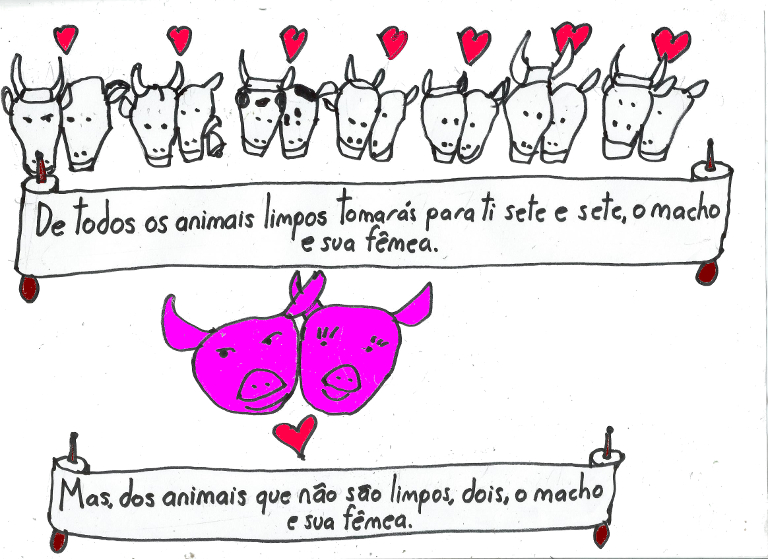 De todos os animais limpos tomarás para ti sete e sete, o macho
e sua fêmea.
Mas, dos animais que não são limpos, dois, o macho
e sua fêmea.